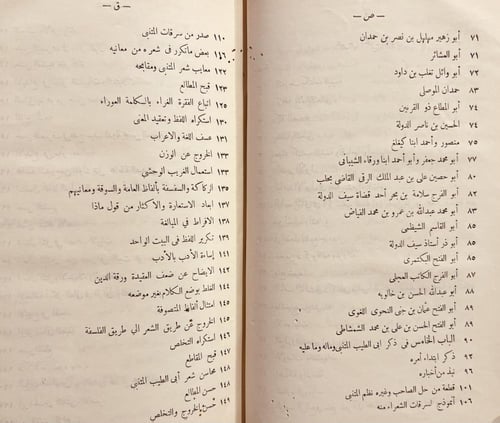 — ص —
٧١ أبو زهير مهلهل بن نصر بن حمدان
٧١ أبو العشائر
٧٢ أبو وائل تغلب بن داود
٧٣ حمدان الموصلى
٧٤ أبو المطاع ذو القرنين
٧٤ الحسين بن ناصر الدولة
٧٥ منصور وأحمد ابنا كيغلغ
٧٧ أبو محمد جعفر وأبو أحمد ابنا ورقاء الشيبانى
٨٠ أبو حصين على بن عبد الملك الرقى القاضى بحلب
٨٢ أبو الفرج سلامة بن بحر أحد قضاة سيف الدولة
٨٢ أبو محمد عبدالله بن عمرو بن محمد الفياض
٨٣ أبو القاسم الشيظمى
٨٥ أبو ذر أستاذ سيف الدولة
٨٥ أبو الفتح البكتمرى
٨٧ أبو الفرج الكاتب العجلى
٨٨ أبو عبدالله الحسن بن خالويه
٨٩ أبو الفتح عثمان بن جنى النحوى اللغوى
٨٩ أبو الفتح الحسن بن على بن محمد الشمشاطى
٩٠ الباب الخامس فى ذكر أبى الطيب المتنبى وماله وما عليه
٩٢ ذكر ابتداء أمره
٩٣ نبذ من أخباره
١٠١ قطعة من حل الصاحب وغيره نظم المتنبى
١٠٦ أنموذج لسرقات الشعراء منه
— ق —
١١٠ صدر من سرقات المتنبى
١١٦ بعض ماتكرر فى شعره من معانيه
١٢٢ معايب شعر المتنبى ومقابحه
١٢٣ قبح المطالع
١٢٥ اتباع الفقرة الغراء بالكلمة العوراء
١٣٠ استكراه اللفظ وتعقيد المعنى
١٣١ عسف اللغة والاعراب
١٣٣ الخروج عن الوزن
١٣٣ استعمال الغريب الوحشى
١٣٥ الركاكة والسفسفة بألفاظ العامة والسوقة ومعانيهم
١٣٧ ابعاد الاستعارة والاكثار من قول ماذا
١٣٨ الافراط فى المبالغة
١٣٩ تكرير اللفظ فى البيت الواحد
١٤١ إساءة الأدب بالأدب
١٤٢ الايضاح عن ضعف العقيدة ورقة الدين
١٤٣ الغلط بوضع الكلام بغير موضعه
١٤٥ امتثال ألفاظ المتصوفة
١٤٥ الخروج عن طريق الشعر الى طريق الفلسفة
١٤٦ استكراه التخلص
١٤٧ قبح المقاطع
١٤٨ محاسن شعر أبى الطيب المتنبى
١٤٨ حسن المطالع
١٤٩ حسن الخروج والتخلص